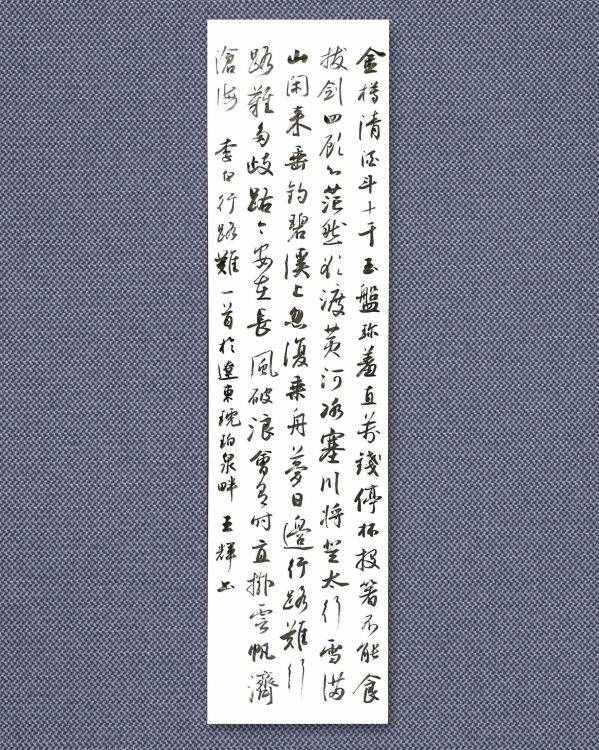 金樽清酒斗十千玉盤珍羞直萬錢停杯投箸不能食
拔劍四顧心茫然欲渡黃河冰塞川將登太行雪滿
山閑來垂釣碧溪上忽復乘舟夢日邊行路難行
路難多歧路今安在長風破浪會有時直掛雲帆濟
滄海 李白行路難一首於遼東琥珀泉畔 王輝書